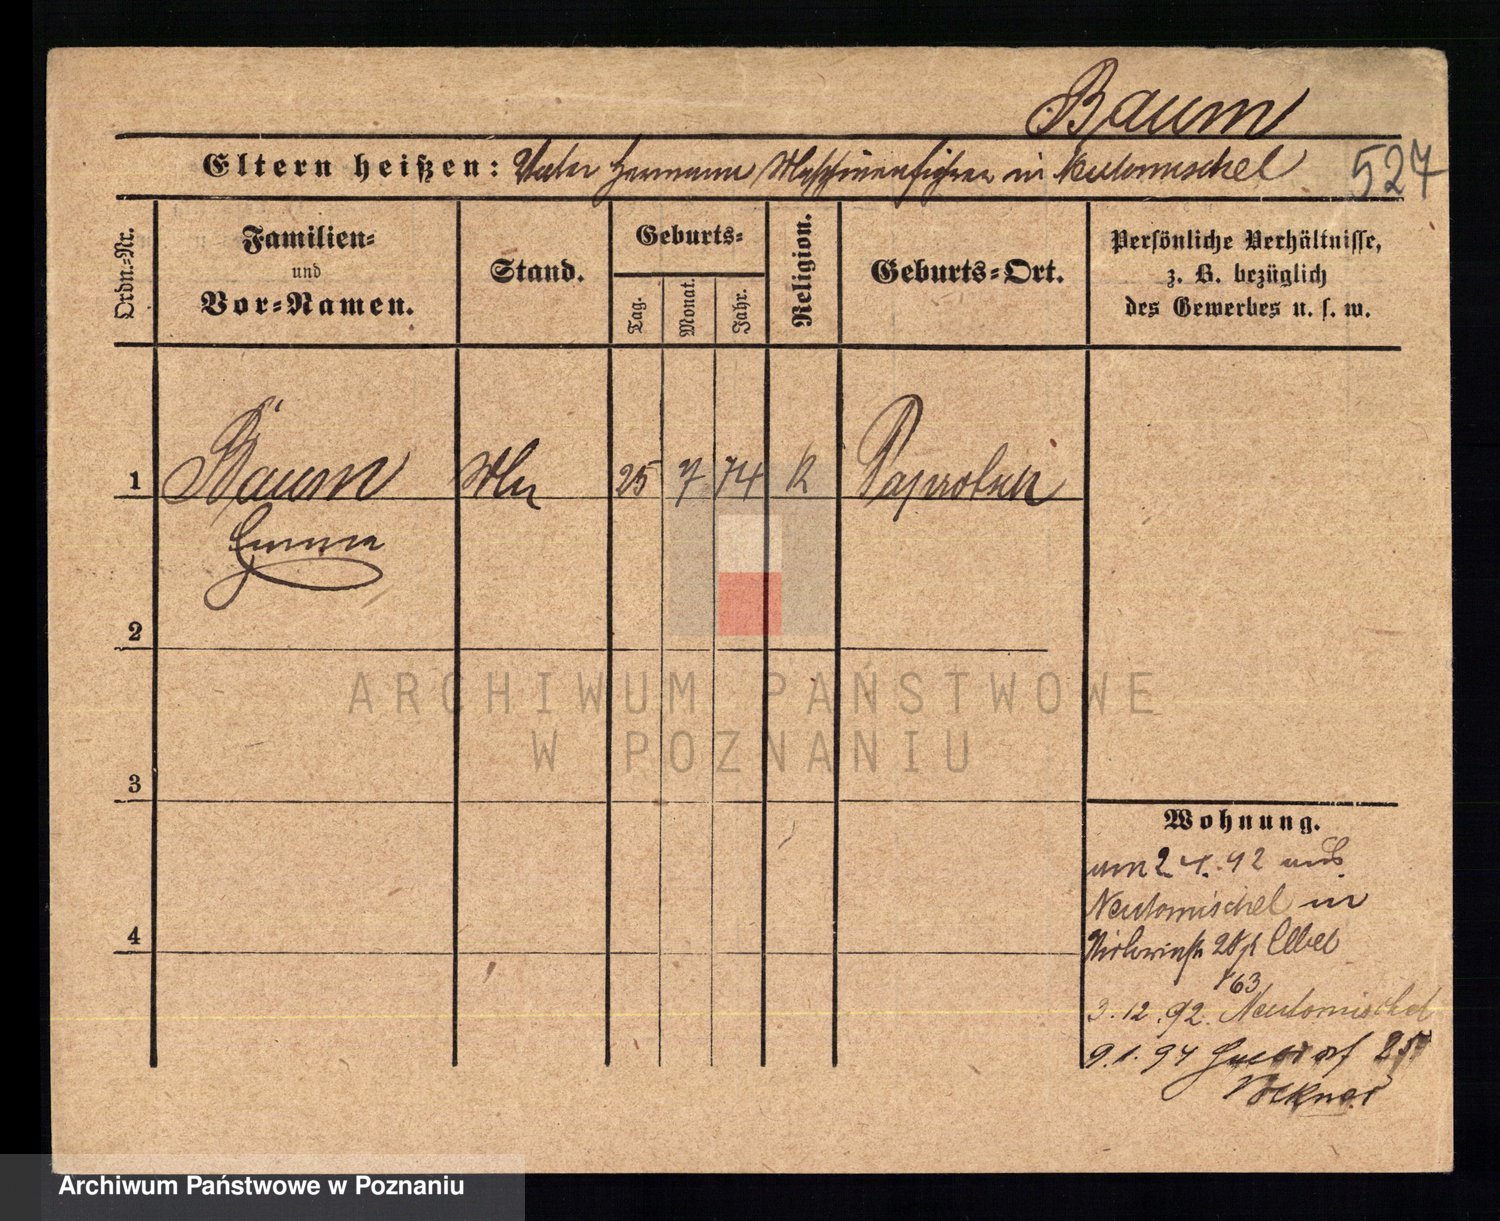 Baum
Eltern heißen: Vater Hermann Maschinenführer in Neutomischel
527
Ordn.-Nr.
Familien-
und
Vor-Namen.
Stand.
Geburts-
Tag.
Monat.
Jahr.
Religion.
Geburts-Ort.
Persönliche Verhältnisse,
z. B. bezüglich
des Gewerbes u. s. w.
1
Baum
25
7
74
Emma
2
3
4
ARCHIWUM PAŃSTWOWE
W POZNANIU
Wohnung.
2.4.92 aus
Neutomischel in
28
63
3.12.92. Neutomischel
9.1.94
Archiwum Państwowe w Poznaniu